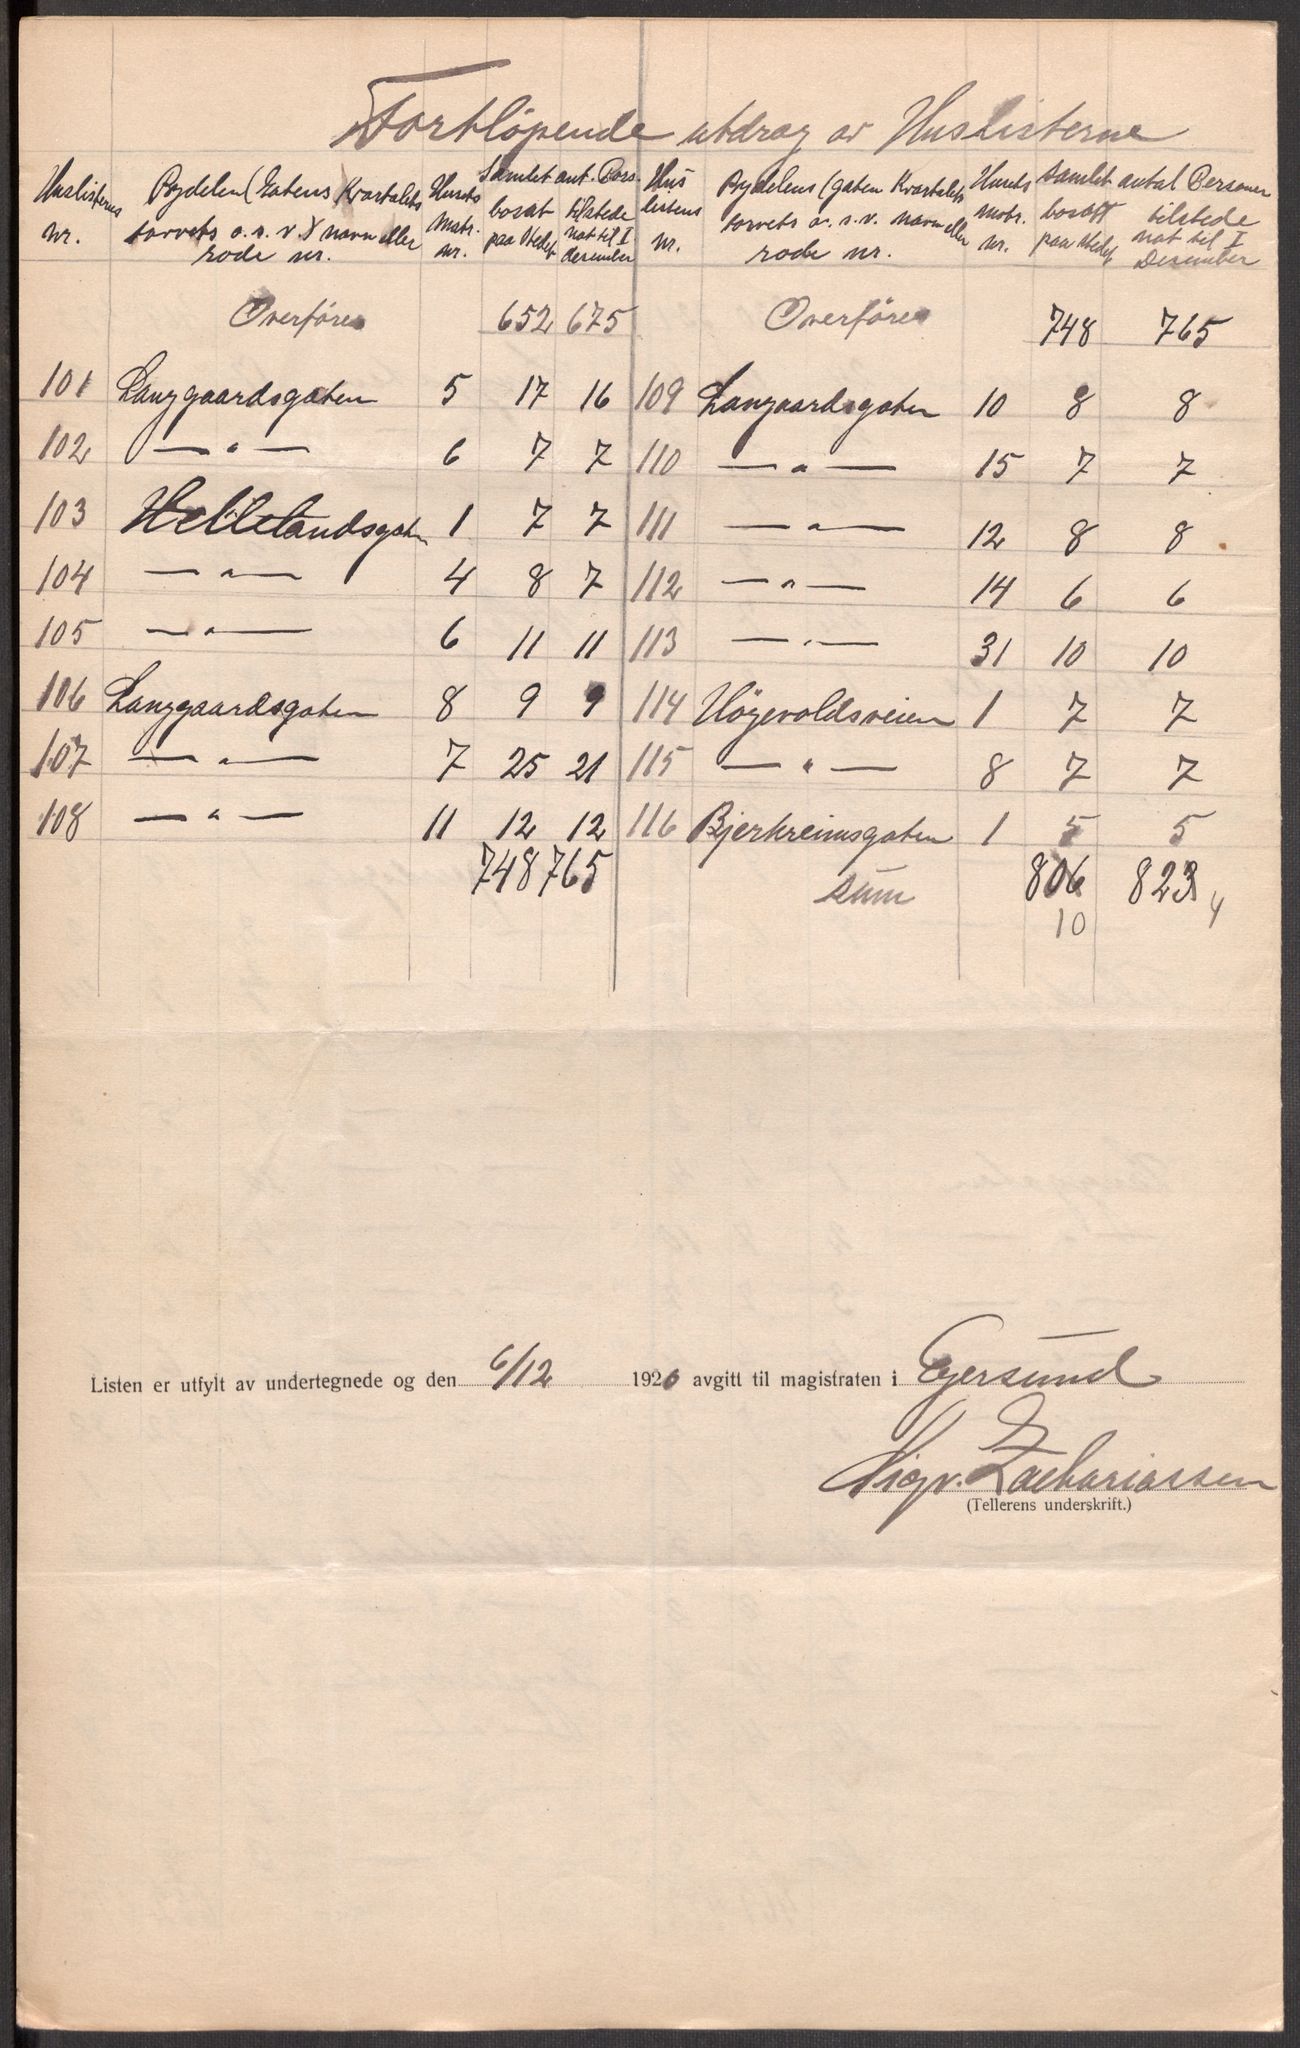 Fortløpende utdrag av Huslisterne
Huslisternes nr. | Bydelen (Gatens Kvartalets torvets o.s.v.) navn eller rode nr. | Husets matr. nr. | Samlet ant. Pers. bosat paa stedet | tilstede nat til 1 desember | Huslistens nr. | Bydelens (gaten Kvartalets torvets o.s.v. navn eller rode nr. | Husets matr. nr. | Samlet antal Personer bosatt paa stedet | tilstede nat til 1 Desember
Overføres 652 675 Overføres 748 765
101 Langgaardsgaten 5 17 16 109 Langaardsgaten 10 8 8
102 — " — 6 7 7 110 — " — 15 7 7
103 Hellelandsgaten 1 7 7 111 — " — 12 8 8
104 — " — 4 8 7 112 — " — 14 6 6
105 — " — 6 11 11 113 — " — 31 10 10
106 Langgaardsgaten 8 9 9 114 Högevoldsveien 1 7 7
107 — " — 7 25 21 115 — " — 8 7 7
108 — " — 11 12 12 116 Bjerkreimsgaten 1 5 5
748 765 sum 806 823
10 4
Listen er utfylt av undertegnede og den 6/12 1920 avgitt til magistraten i Egersund
Sigv. Zachariassen
(Tellerens underskrift.)